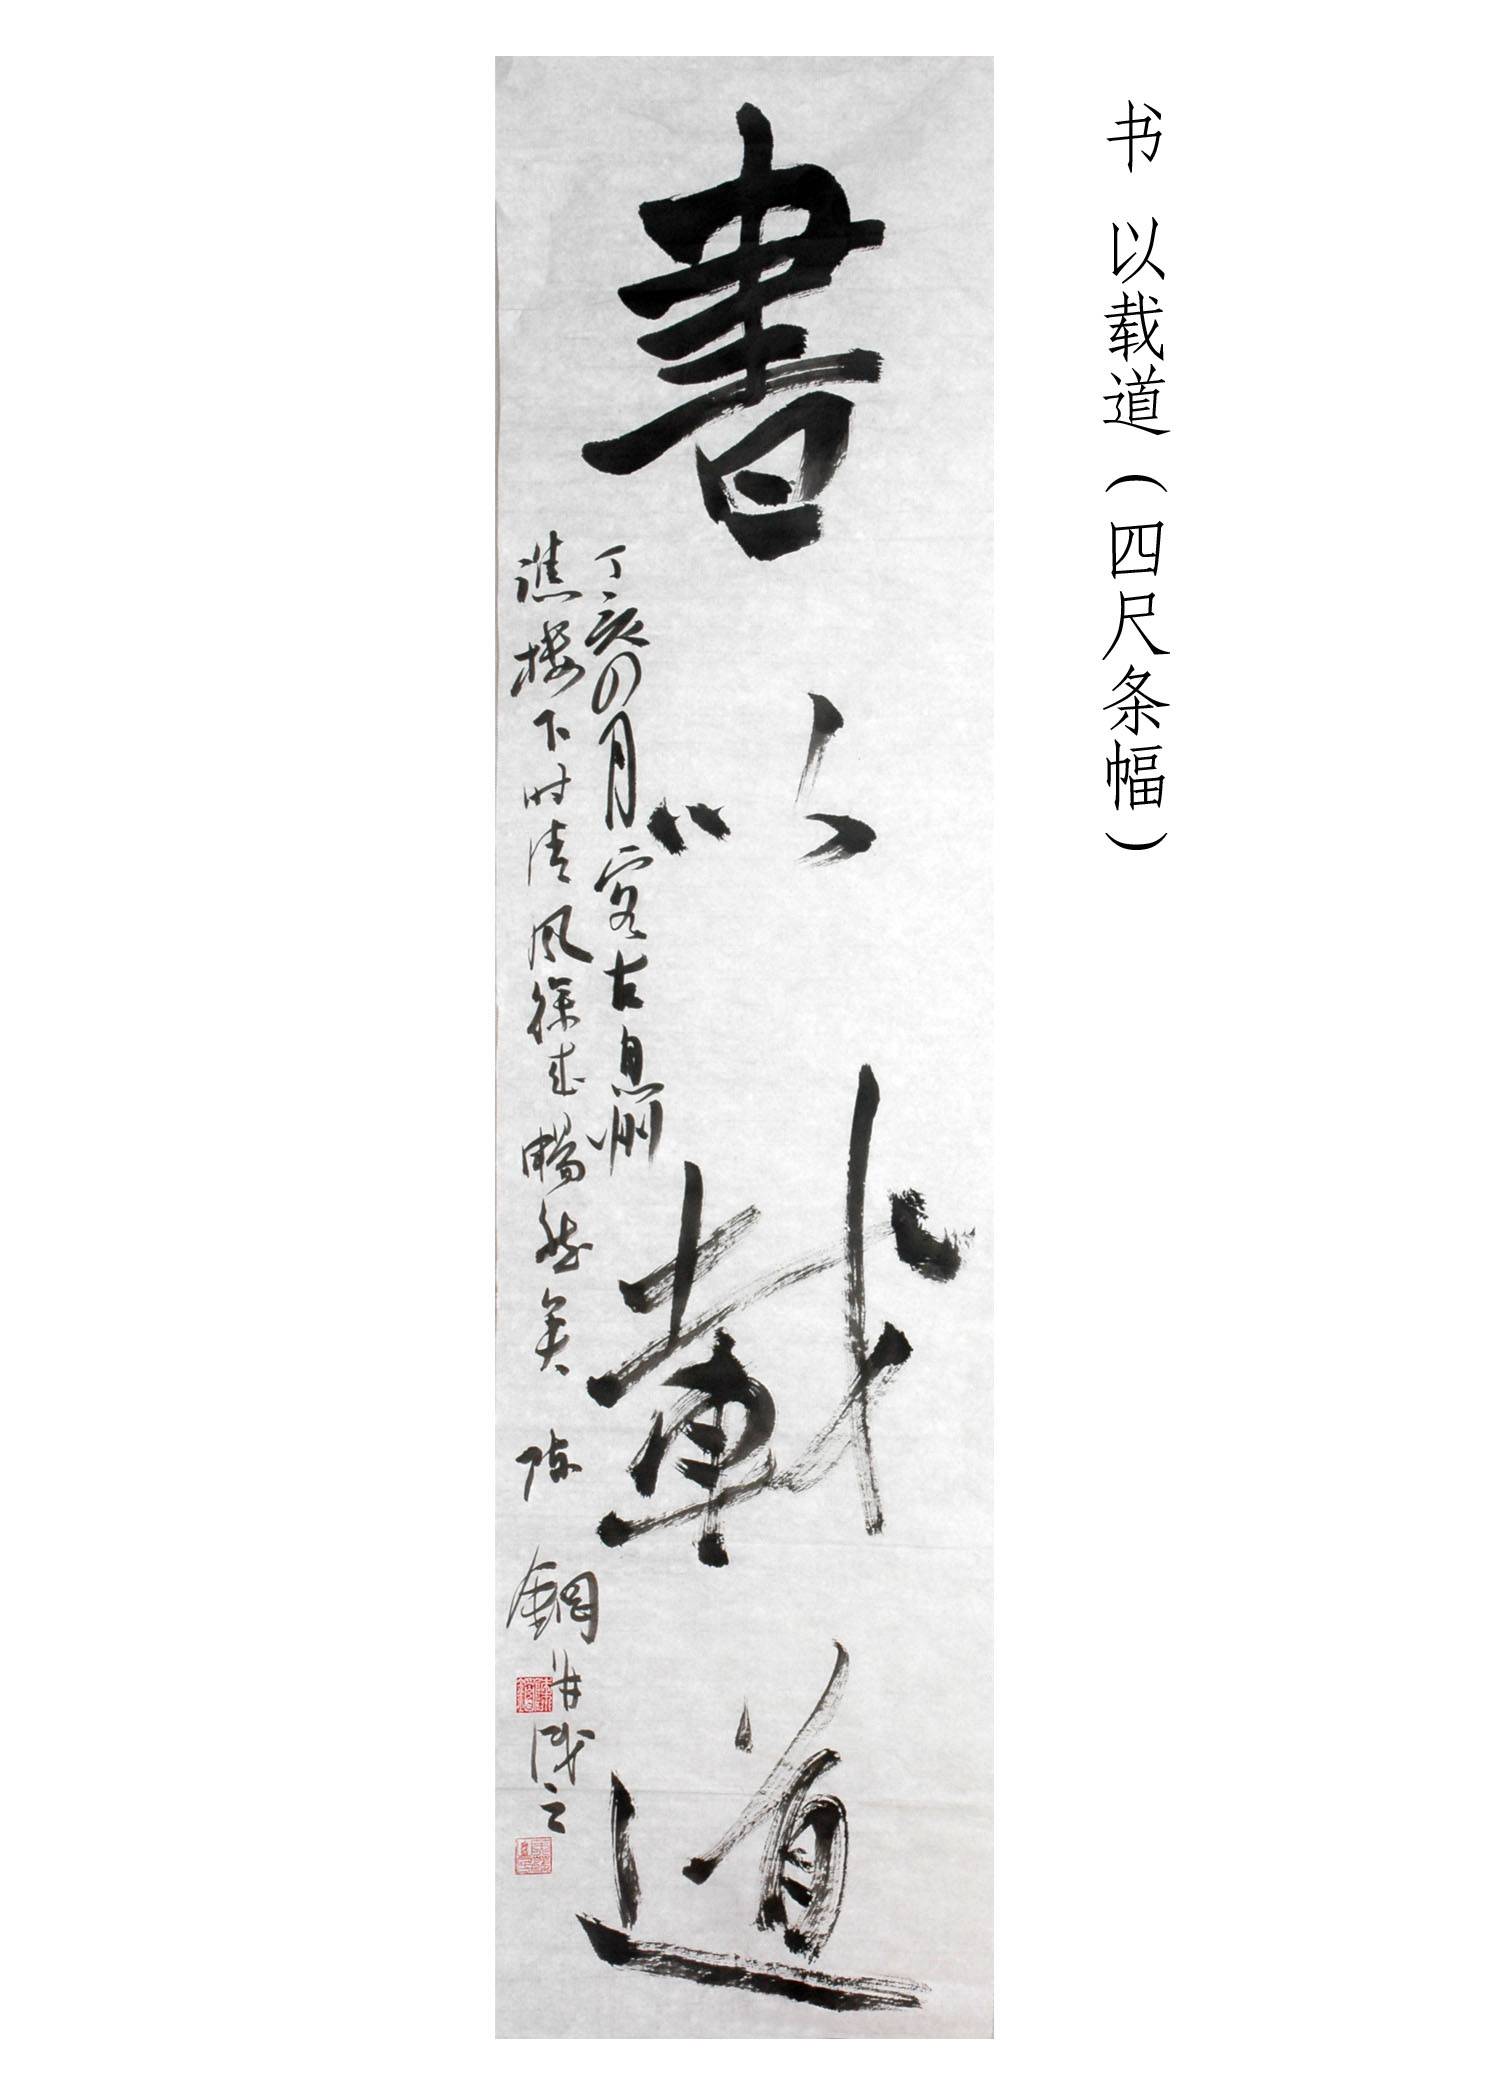 书 以载道（四尺条幅）
書以載道
丁亥四月客古息州
譙楼下时清风徐来畅然矣 陈钢